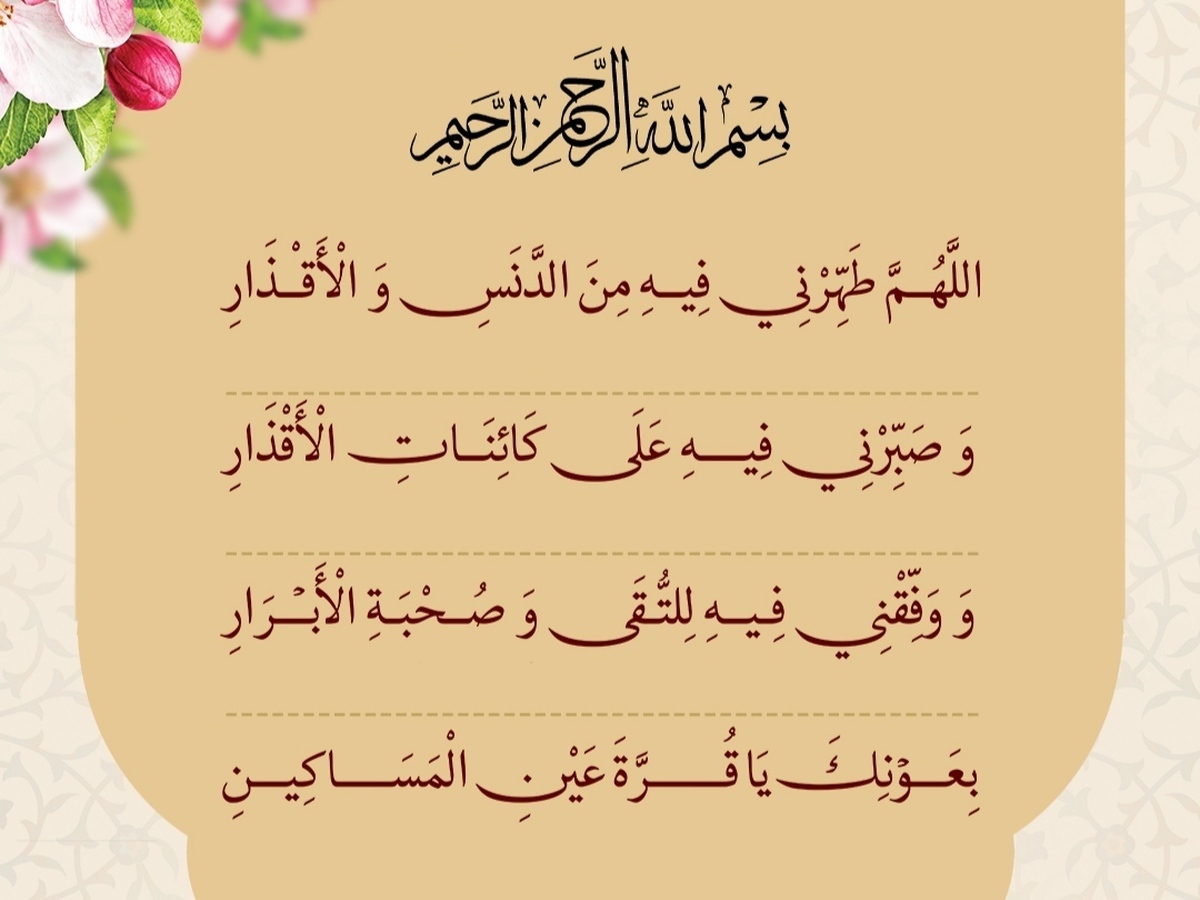 بِسْمِ اللَّهِ الرَّحْمنِ الرَّحِيمِ
اللَّهُمَّ طَهِّرْنِي فِيهِ مِنَ الدَّنَسِ وَ الْأَقْذَارِ
وَ صَبِّرْنِي فِيهِ عَلَى كَائِنَاتِ الْأَقْذَارِ
وَ وَفِّقْنِي فِيهِ لِلتُّقَى وَ صُحْبَةِ الْأَبْرَارِ
بِعَوْنِكَ يَا قُرَّةَ عَيْنِ الْمَسَاكِينِ